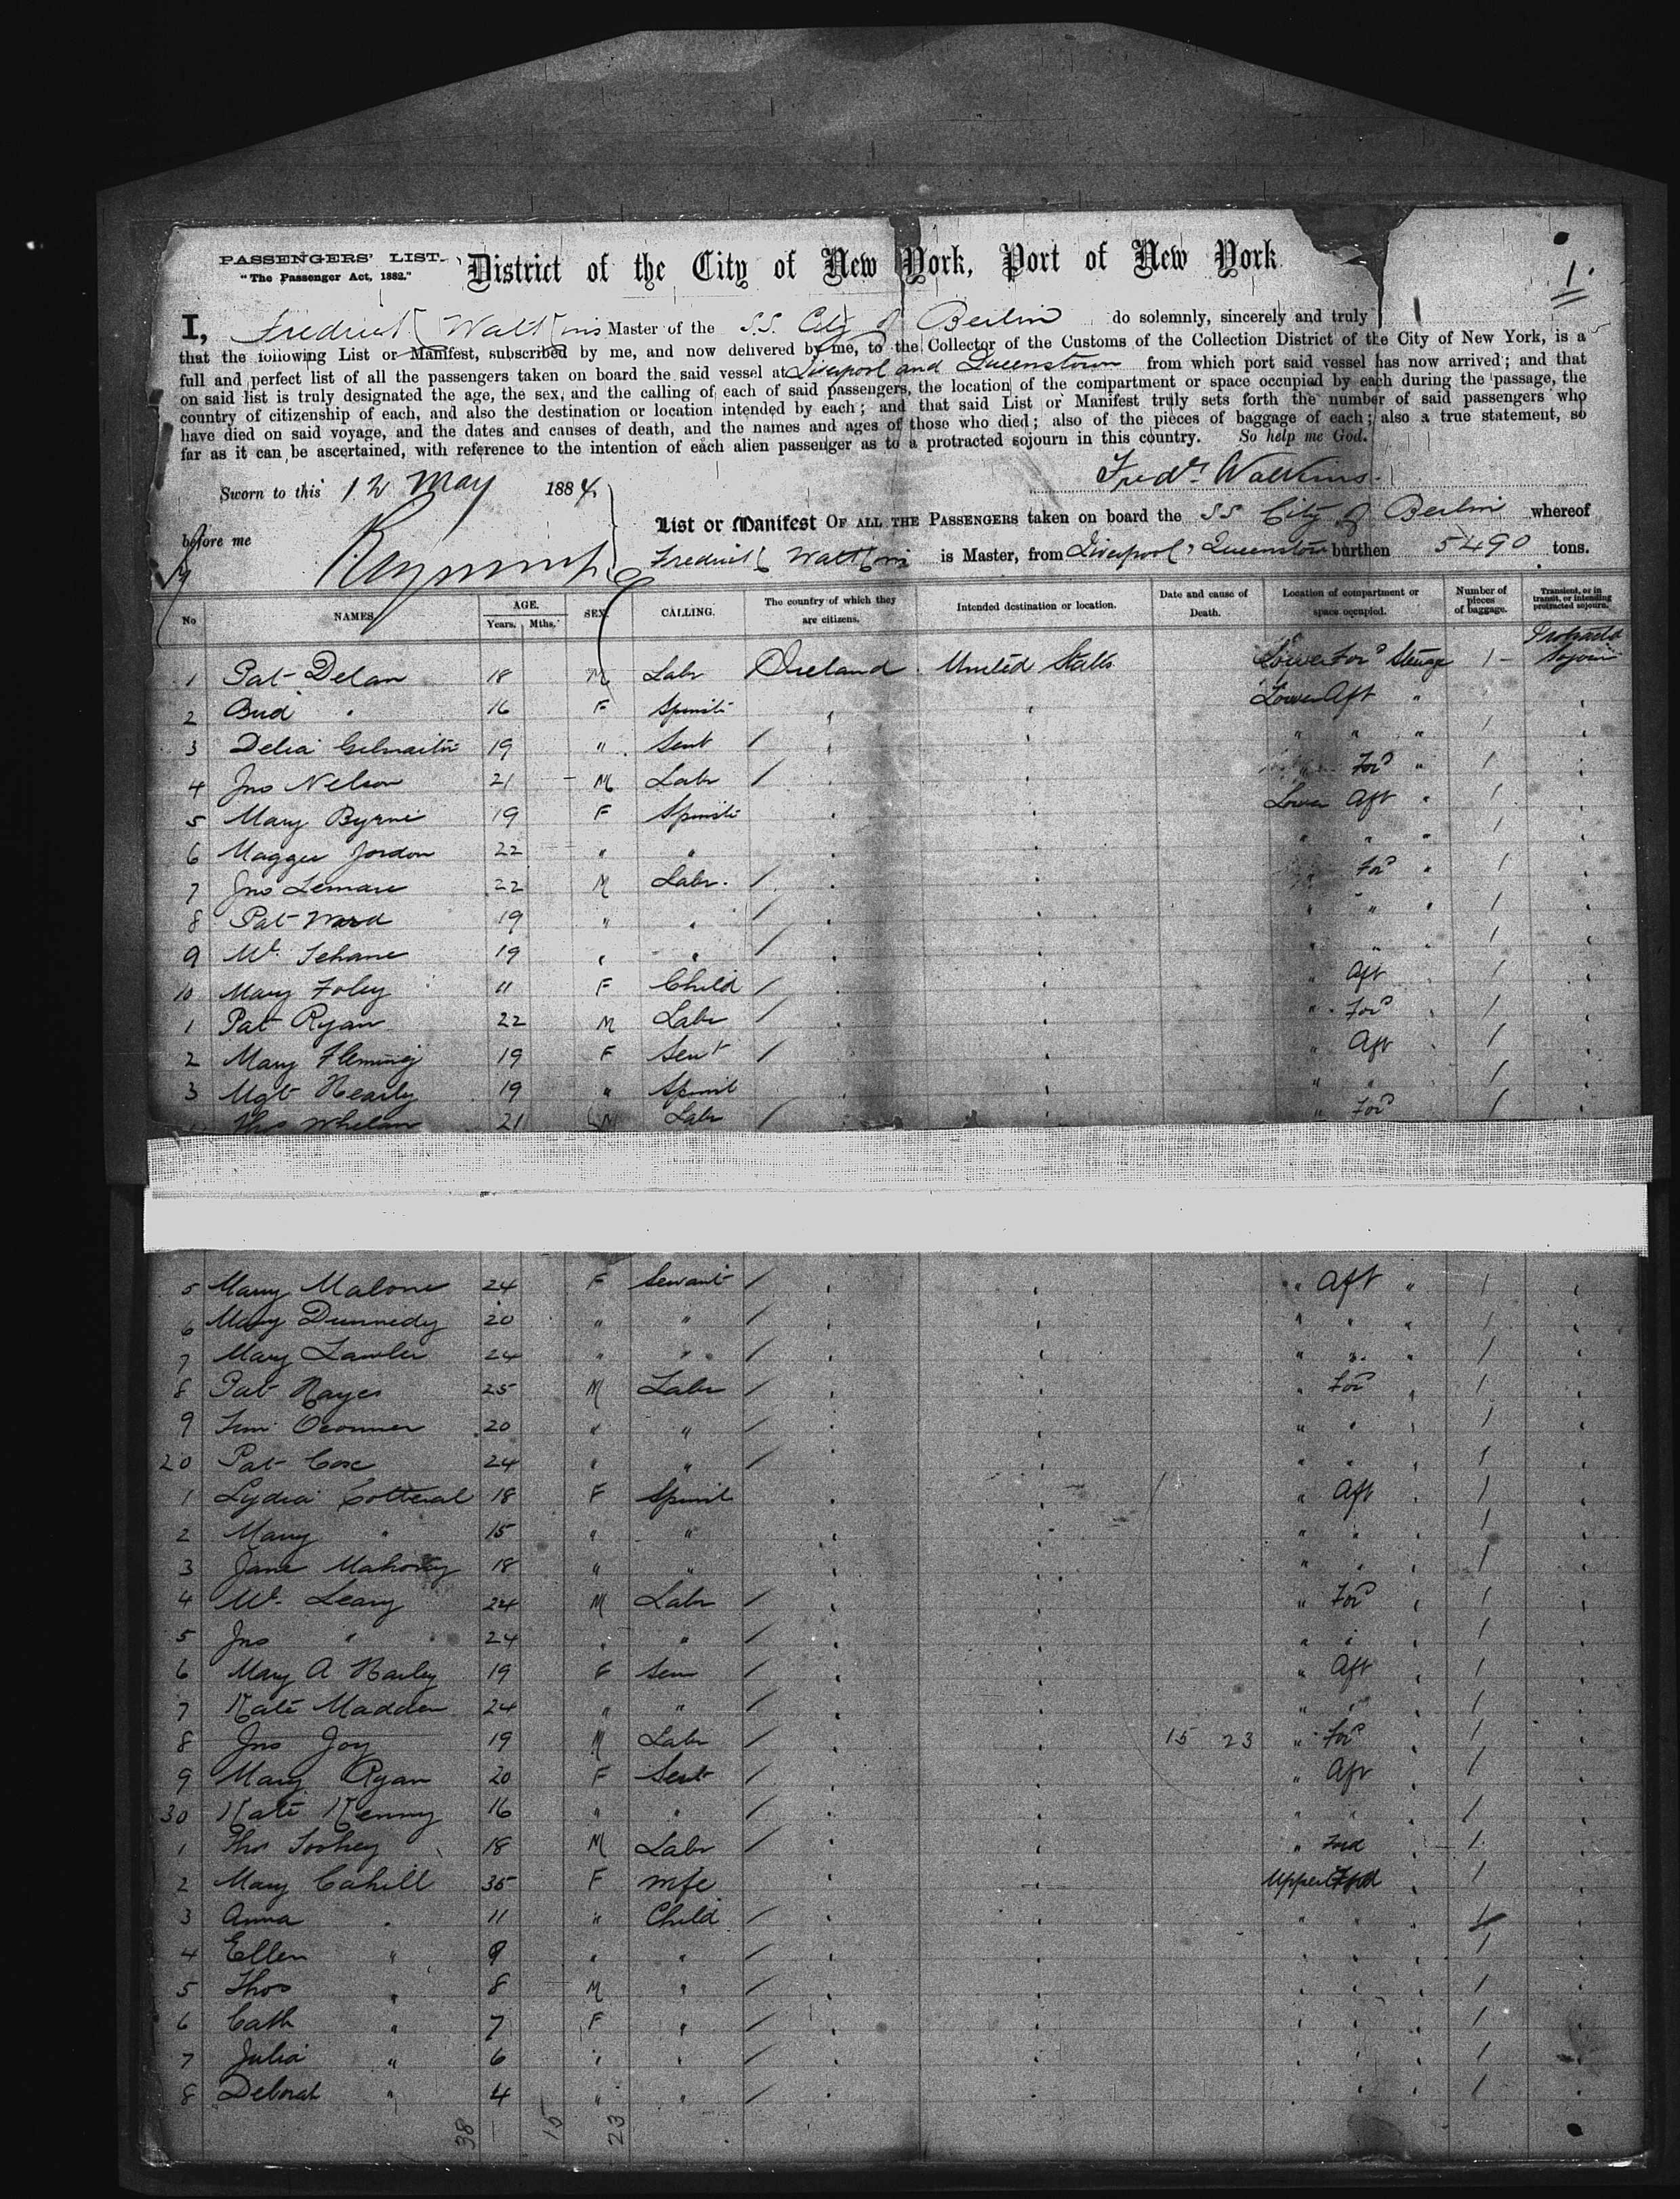 PASSENGERS' LIST.
"The Passenger Act, 1882."
District of the City of New York, Port of New York
1
I, Fredrick Watkins Master of the S.S. City of Berlin do solemnly, sincerely and truly
that the following List or Manifest, subscribed by me, and now delivered by me, to the Collector of the Customs of the Collection District of the City of New York, is a
full and perfect list of all the passengers taken on board the said vessel at Liverpool and Queenstown from which port said vessel has now arrived; and that
on said list is truly designated the age, the sex, and the calling of each of said passengers, the location of the compartment or space occupied by each during the passage, the
country of citizenship of each, and also the destination or location intended by each; and that said List or Manifest truly sets forth the number of said passengers who
have died on said voyage, and the dates and causes of death, and the names and ages of those who died; also of the pieces of baggage of each; also a true statement, so
far as it can be ascertained, with reference to the intention of each alien passenger as to a protracted sojourn in this country. So help me God.
Sworn to this 12 May 1884
Fredk Watkins.
before me
List or Manifest OF ALL THE PASSENGERS taken on board the SS City of Berlin whereof
Fredrick Watkins is Master, from Liverpool & Queenstown burthen 5490 tons.
No NAMES AGE. Years. Mths. SEX. CALLING. The country of which they are citizens. Intended destination or location. Date and cause of Death. Location of compartment or space occupied. Number of pieces of baggage. Transient, or in transit, or intending protracted sojourn.
1 Pat Delan 18 M Labr Ireland United States Lower For'd Steerage 1 Protracted Sojourn
2 Brid " 16 F Spinster Lower Aft "
3 Delia 19 " Sevt / " " " 1
4 Jno Nelson 21 M Labr / " For'd " 1
5 Mary Byrne 19 F Spinster Lower Aft " 1
6 Maggie Jordon 22 " " " " " 1
7 Jno 22 M Labr. / " For'd " 1
8 Pat Ward 19 " " / " " " 1
9 Wm 19 " " / " " " 1
10 Mary Foley 11 F Child / " Aft 1
1 Pat Ryan 22 M Labr / " For'd 1
2 Mary Fleming 19 F Sevt / " Aft 1
3 Mgt Hearly 19 " Spinst " " 1
Thos Whelan 21 M Labr / " For'd 1
5 Mary Malone 24 F Servant / " Aft " 1
6 Mary Dunnedy 20 " " / " " " 1
7 Mary Lawler 24 " " / " " " 1
8 Pat Hayes 25 M Labr / " For'd 1
9 Tim Oconner 20 " " / " " 1
20 Pat Cox 24 " " / " " 1
1 Lydia Cotteral 18 F Spinst " Aft 1
2 Mary " 15 " " " " 1
3 Jane Mahoney 18 " " " " 1
4 Wm Leary 24 M Labr / " For'd 1
5 Jno " 24 " " / " " 1
6 Mary A Harley 19 F Serv / " Aft 1
7 Kate Madden 24 " " / " " 1
8 Jno Joy 19 M Labr / 15 23 " For'd 1
9 Mary Ryan 20 F Sevt / " Aft 1
30 Kate Kenny 16 " " / " " 1
1 Thos Toohey 18 M Labr / " Ford 1
2 Mary Cahill 35 F Wife Upper 1
3 Anna " 11 " Child / " " 1
4 Ellen " 9 " " / 1
5 Thos " 8 M " / 1
6 Cath " 7 F " / 1
7 Julia " 6 " " / 1
8 Deborah " 4 " " / 1
38 15 23